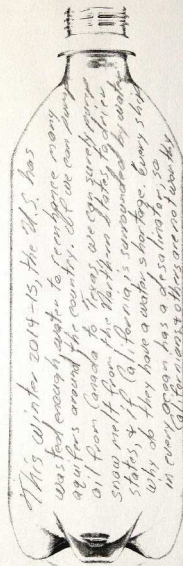 This winter 2014-15, the U.S. has
wasted enough water to reenhance many
aquifers around the country. If we can pump
oil from Canada to Texas, we can surely pump
snow melt from the Northern States, to drier
states, & if California is surrounded by water
why do they have a water shortage. Every ship
in every ocean has a desalinator, so
Californians & others are not worthy